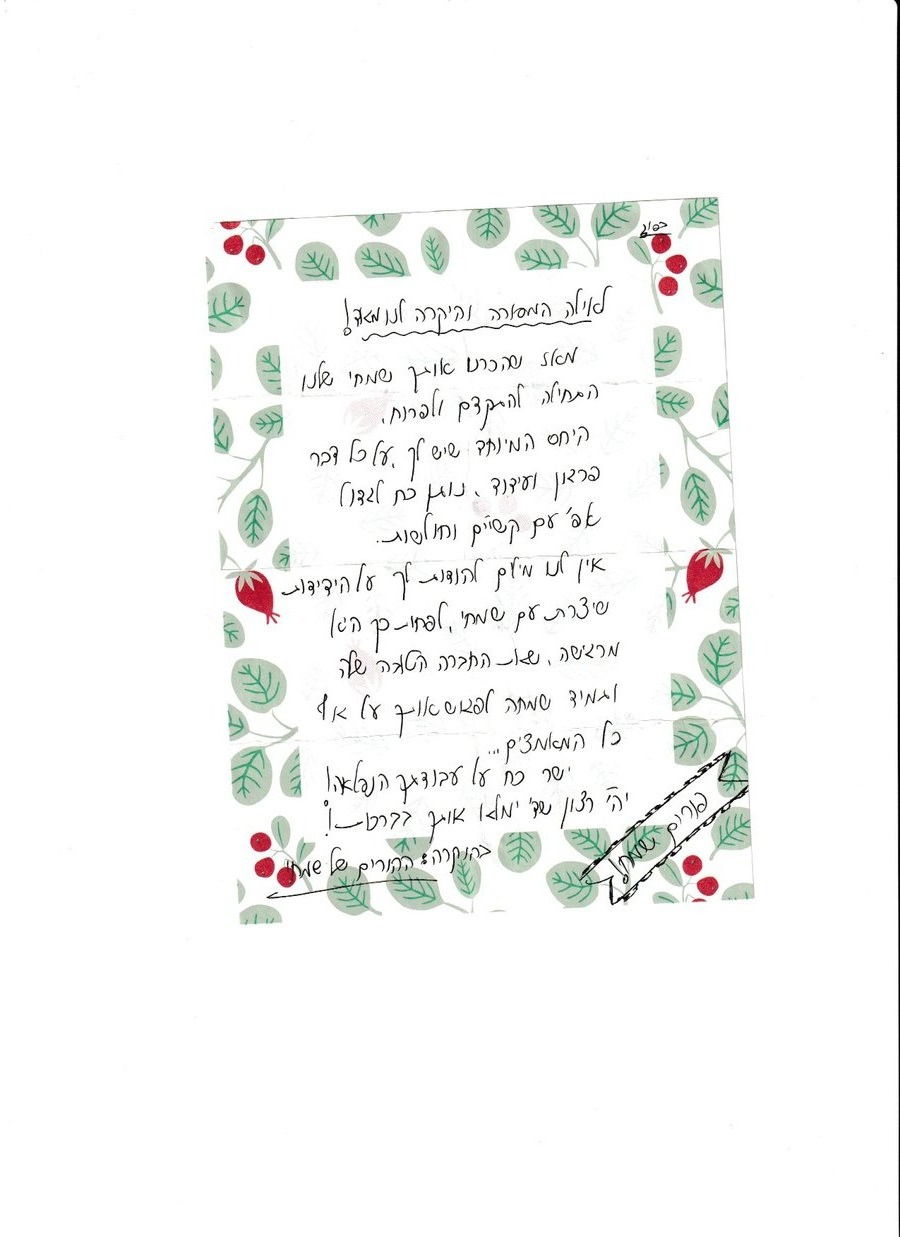 בס״ד
לאילה המסורה והיקרה לנו מאד!
מאז שהכרנו אותך שמחי שלנו
התחילה להתקדם ולפרוח,
היחס המיוחד שיש לך, על כל דבר
פרגון ועידוד, נותן כח לגדול
אפ' עם קשיים וחולשות.
אין לנו מילים להודות לך על הידידות
שיצרת עם שמחי, לפחות כך היא
מרגישה, שאת החברה הטובה שלה
ותמיד שמחה לפגוש אותך על אף
כל המאמצים...
ישר כח על עבודתך הנפלאה!
יה"ר רצון שד' ימלא אותך בברכות!
בהוקרה: ההורים של שמחי
פורים שמח!